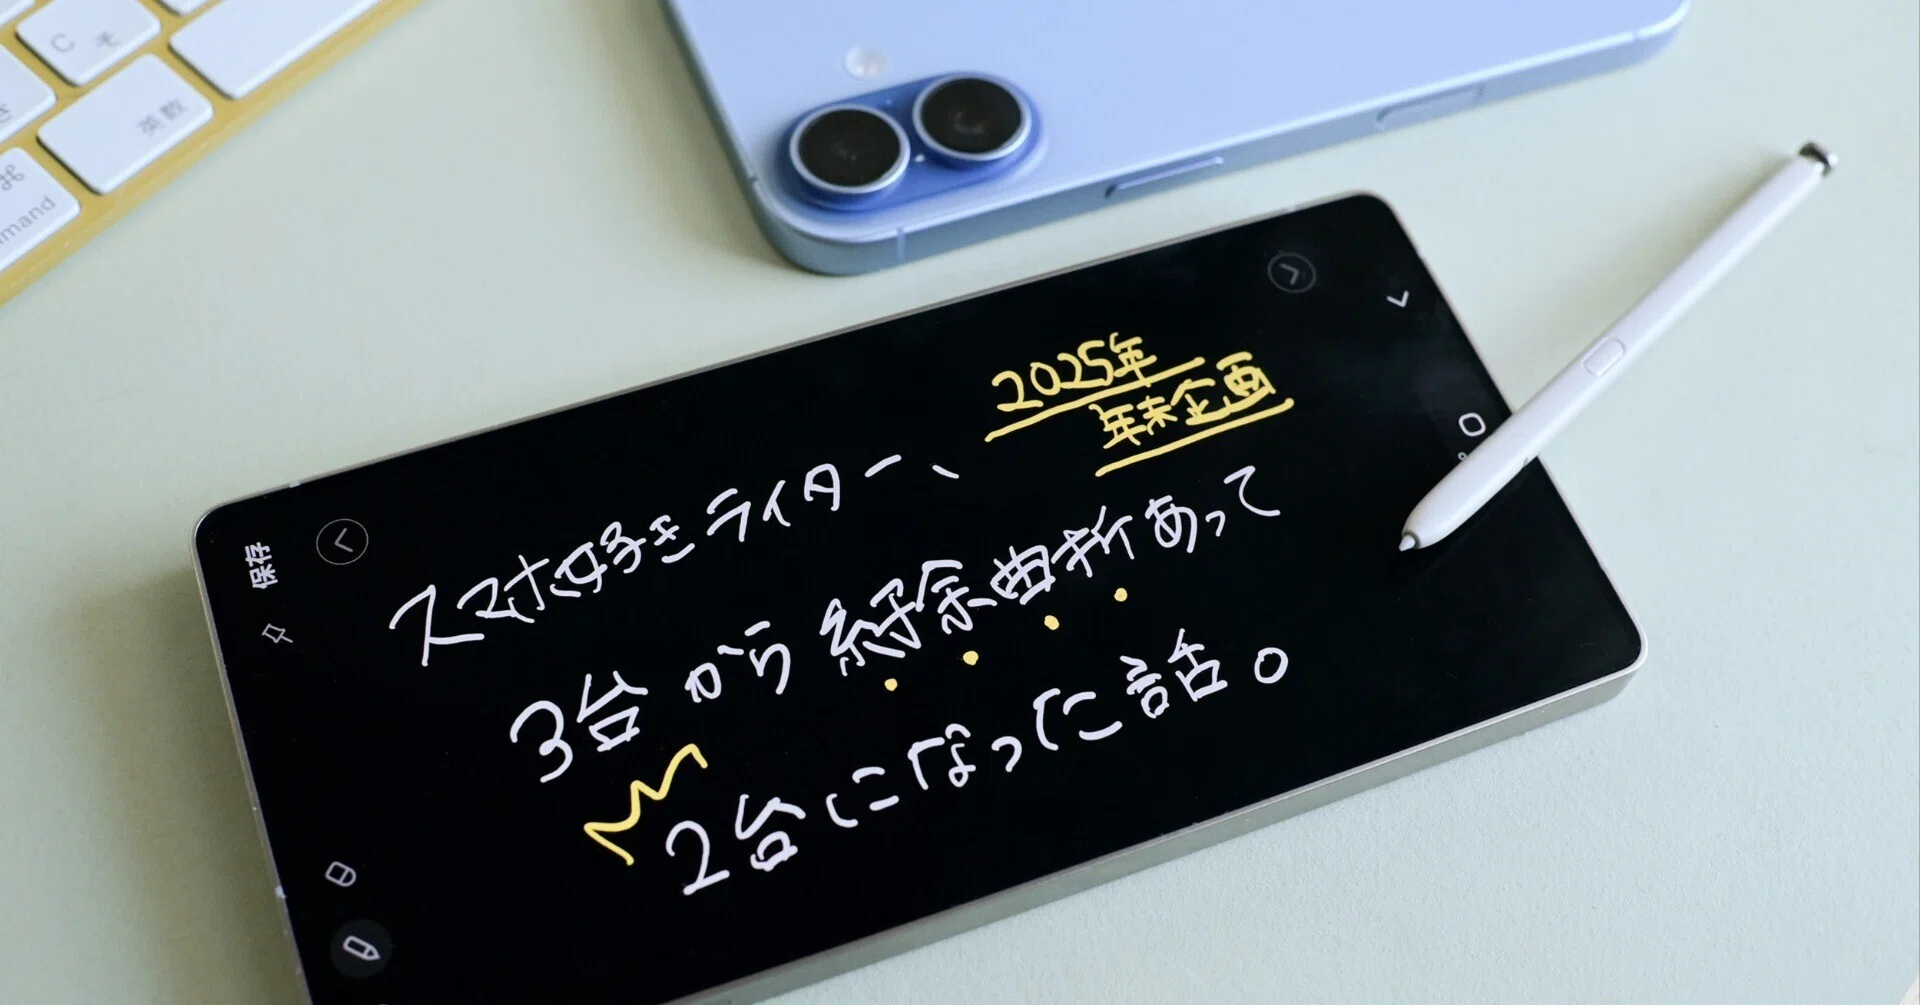 C そ
英数
⌘
mmand
2025年
年末企画
保存
スマホ好きライター、
3台から紆余曲折あって
2台になった話。